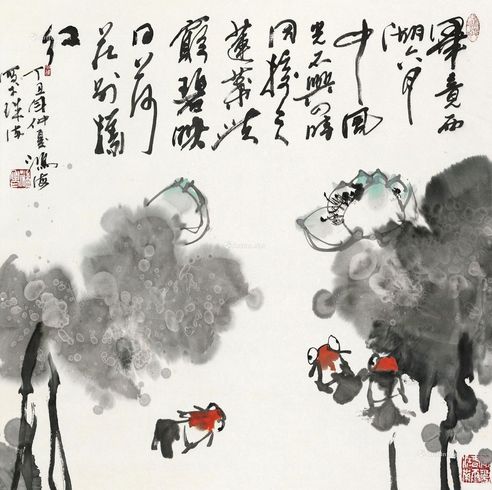 畢竟西
湖六月
中風
光不與四時
同接天
蓮葉無
窮碧映
日荷
花別樣
紅
丁丑年仲夏